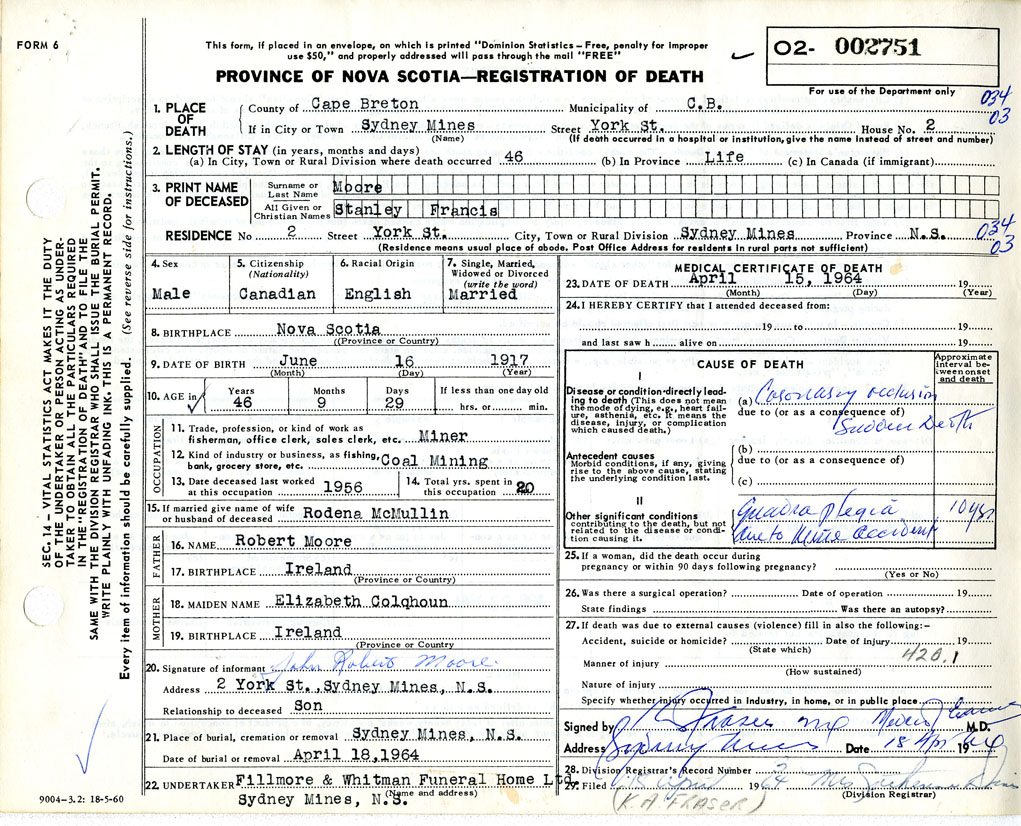 FORM 6
This form, if placed in an envelope, on which is printed "Dominion Statistics – Free, penalty for improper
use $50," and properly addressed will pass through the mail "FREE"
O2- 002751
PROVINCE OF NOVA SCOTIA—REGISTRATION OF DEATH
For use of the Department only
034
03
1. PLACE OF DEATH
County of Cape Breton Municipality of C.B.
If in City or Town Sydney Mines Street York St. House No. 2
(Name) (If death occurred in a hospital or institution, give the name instead of street and number)
2. LENGTH OF STAY (in years, months and days)
(a) In City, Town or Rural Division where death occurred 46 (b) In Province Life (c) In Canada (if immigrant)
3. PRINT NAME OF DECEASED
Surname or Last Name Moore
All Given or Christian Names Stanley Francis
RESIDENCE No 2 Street York St. City, Town or Rural Division Sydney Mines Province N.S.
034
03
(Residence means usual place of abode. Post Office Address for residents in rural parts not sufficient)
4. Sex
Male
5. Citizenship
(Nationality)
Canadian
6. Racial Origin
English
7. Single, Married,
Widowed or Divorced
(write the word)
Married
8. BIRTHPLACE Nova Scotia
(Province or Country)
9. DATE OF BIRTH June 16 1917
(Month) (Day) (Year)
10. AGE in
Years 46
Months 9
Days 29
If less than one day old
hrs. or min.
OCCUPATION
11. Trade, profession, or kind of work as
fisherman, office clerk, sales clerk, etc. Miner
12. Kind of industry or business, as fishing,
bank, grocery store, etc. Coal Mining
13. Date deceased last worked
at this occupation 1956
14. Total yrs. spent in
this occupation 20
15. If married give name of wife
or husband of deceased Rodena McMullin
FATHER
16. NAME Robert Moore
17. BIRTHPLACE Ireland
(Province or Country)
MOTHER
18. MAIDEN NAME Elizabeth Colqhoun
19. BIRTHPLACE Ireland
(Province or Country
20. Signature of informant John Robert Moore
Address 2 York St., Sydney Mines, N.S.
Relationship to deceased Son
21. Place of burial, cremation or removal Sydney Mines, N.S.
Date of burial or removal April 18,1964
22. UNDERTAKER Fillmore & Whitman Funeral Home Ltd.
(Name and address)
Sydney Mines, N.S.
9004-3.2: 18-5-60
MEDICAL CERTIFICATE OF DEATH
23. DATE OF DEATH April 15, 1964 19
(Month) (Day) (Year)
24. I HEREBY CERTIFY that I attended deceased from:
19 to 19
and last saw h alive on 19
CAUSE OF DEATH
Approximate
interval be-
tween onset
and death
I
Disease or condition directly lead-
ing to death (This does not mean
the mode of dying, e.g., heart fail-
ure, asthenia, etc. It means the
disease, injury, or complication
which caused death.)
(a) Coronary occlusion
due to (or as a consequence of)
Sudden Death
Antecedent causes
Morbid conditions, if any, giving
rise to the above cause, stating
the underlying condition last.
(b)
due to (or as a consequence of)
(c)
II
Other significant conditions
contributing to the death, but not
related to the disease or condi-
tion causing it.
Quadraplegia 10 yr
due to Mine Accident
25. If a woman, did the death occur during
pregnancy or within 90 days following pregnancy?
(Yes or No)
26. Was there a surgical operation? Date of operation 19
State findings Was there an autopsy?
27. If death was due to external causes (violence) fill in also the following:–
Accident, suicide or homicide? Date of injury 19
(State which)
420.1
Manner of injury
(How sustained)
Nature of injury
Specify whether injury occurred in Industry, in home, or in public place
Signed by K A Fraser MD M.D.
Address Sydney Mines Date 18 Apr 1964
28. Division Registrar's Record Number
29. Filed April 1964
(Division Registrar)
(K.A FRASER)
SEC. 14 – VITAL STATISTICS ACT MAKES IT THE DUTY
OF THE UNDERTAKER OR PERSON ACTING AS UNDER-
TAKER TO OBTAIN ALL THE PARTICULARS REQUIRED
IN THE "REGISTRATION OF DEATH" AND TO FILE THE
SAME WITH THE DIVISION REGISTRAR WHO SHALL ISSUE THE BURIAL PERMIT.
WRITE PLAINLY WITH UNFADING INK. THIS IS A PERMANENT RECORD.
Every item of information should be carefully supplied. (See reverse side for instructions.)